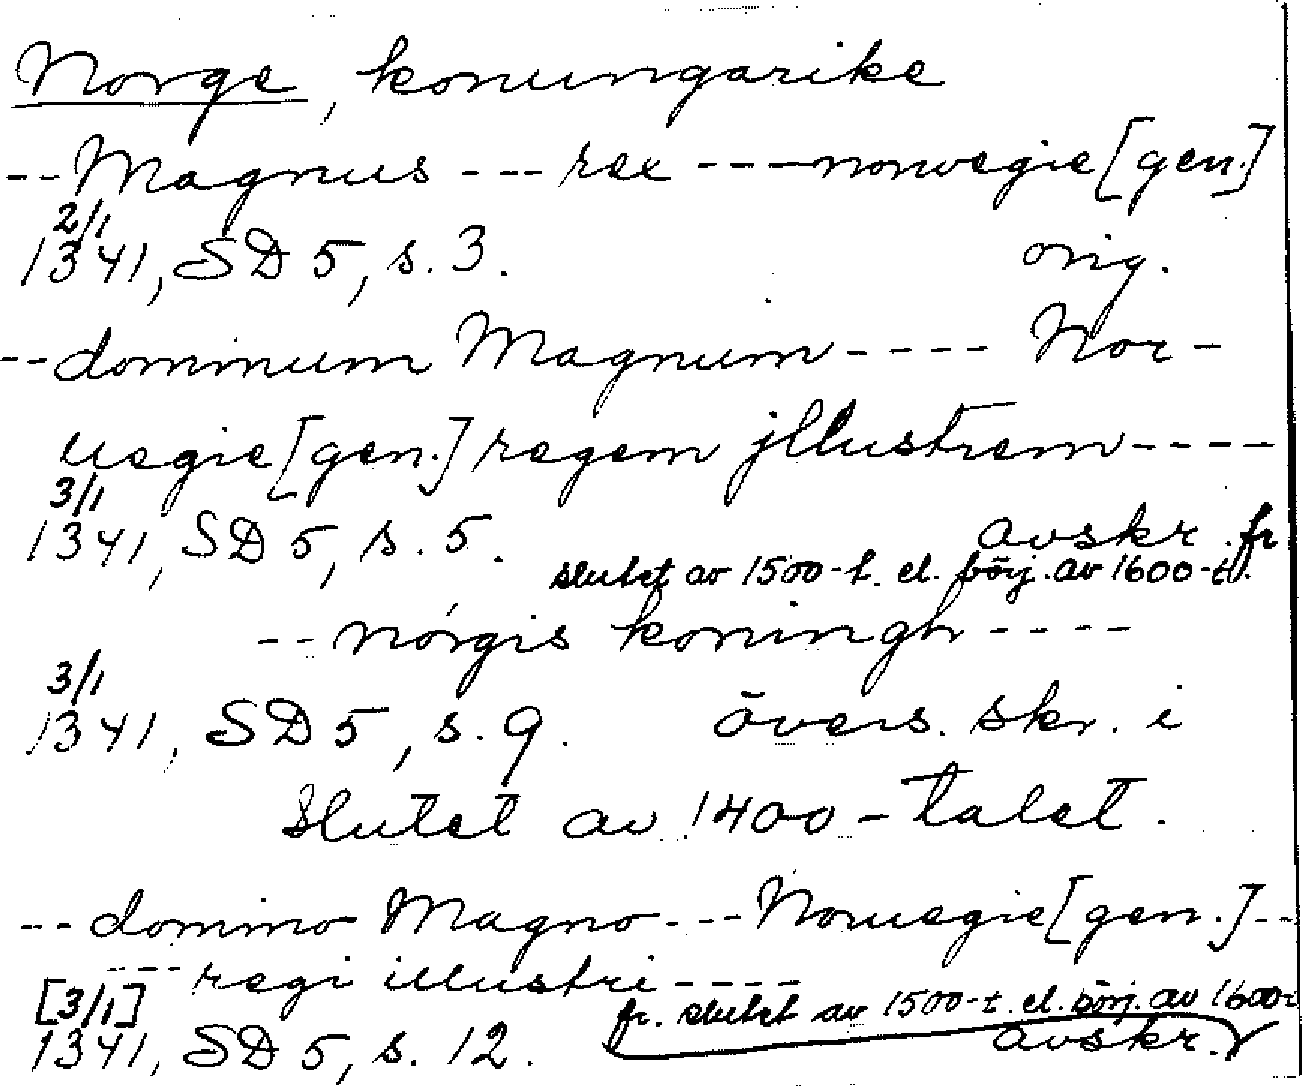 Norge, konungarike
-- Magnus --- rex --- norwegie [gen.]
2/1
1341, SD 5, s. 3. orig.
-- dominum Magnum ---- Nor-
uegie [gen.] regem jllustrem ----
3/1
1341, SD 5, s. 5. avskr. fr
slutet av 1500-t. el. börj. av 1600-t.
-- nórgis koningh ----
3/1
1341, SD 5, s. 9. övers. skr. i
slutet av 1400-talet.
-- domino Magno --- Noruegie [gen.] --
--- regi illustri ----
[3/1] fr. slutet av 1500-t. el. börj. av 1600-t
1341, SD 5, s. 12. avskr.